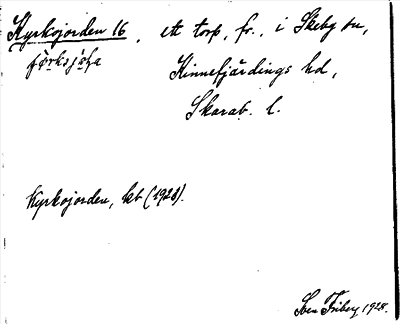 Kyrkojorden 16, ett torp, fr., i Skeby sn,
Kinnefjärdings hd,
Skarab. l.
Kyrkojorden, kb (1928).
Sven Friberg 1928.